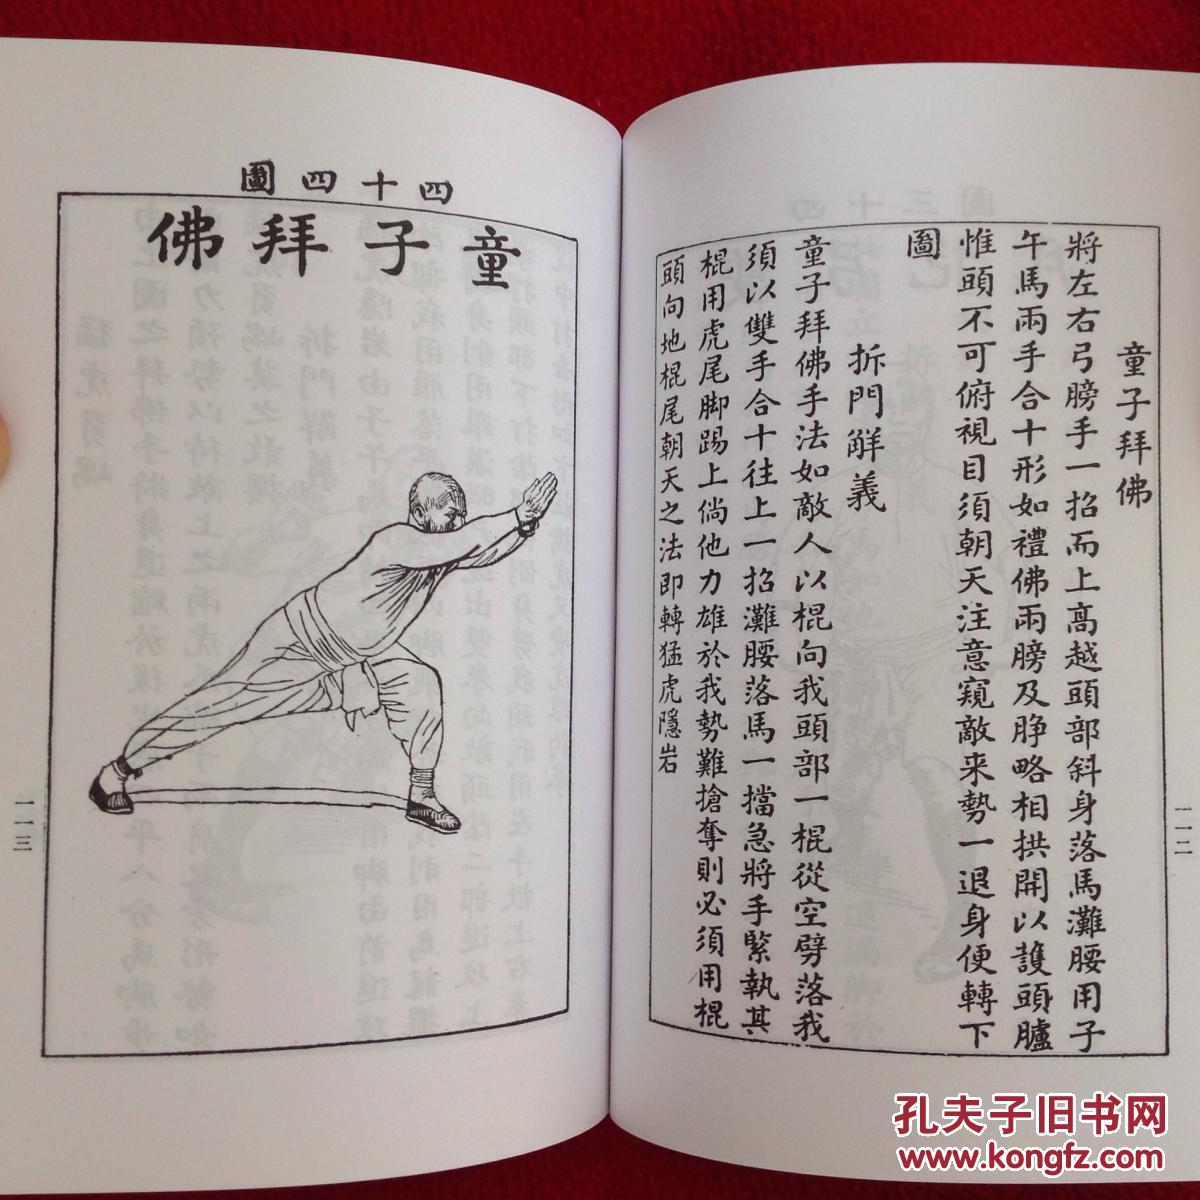 童子拜佛
將左右弓膀手一招而上高越頭部斜身落馬灘腰用子
午馬兩手合十形如禮佛兩膀及脝略相拱開以護頭臚
惟頭不可俯視目須朝天注意窺敵来勢一退身便轉下
圖
拆門解義
童子拜佛手法如敵人以棍向我頭部一棍從空劈落我
須以雙手合十往上一招灘腰落馬一擋急將手緊執其
棍用虎尾脚踢上倘他力雄於我勢難搶奪則必須用棍
頭向地棍尾朝天之法即轉猛虎隱岩
一一二
圖四十四
佛拜子童
一一三
孔夫子旧书网
www.kongfz.com